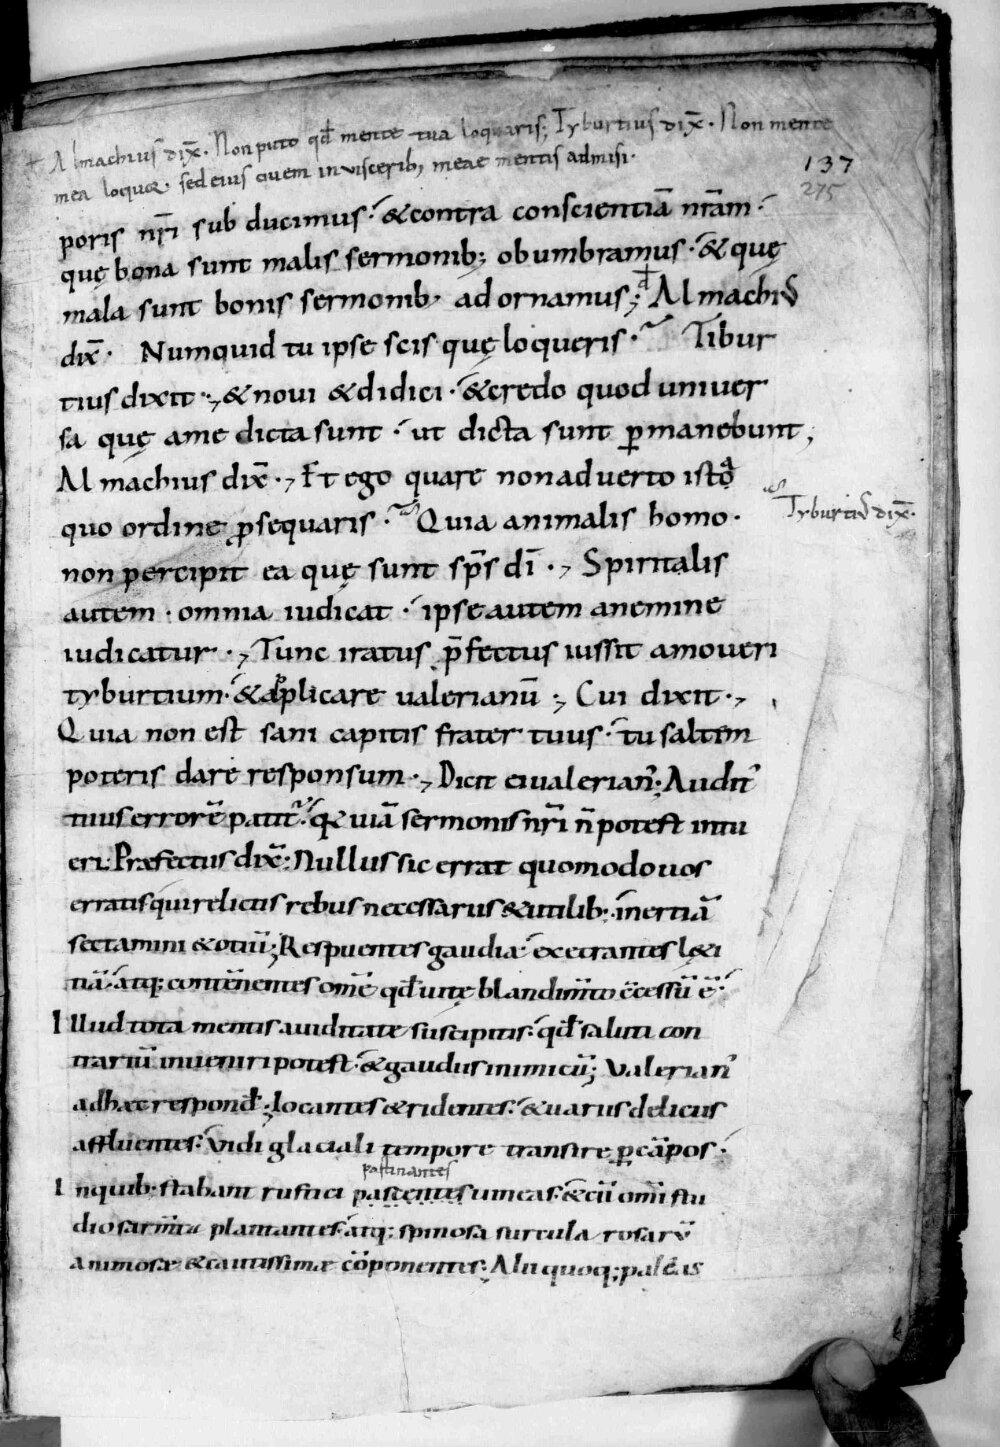 + Almachius dix̄. Non puto qđ mente tua loquaris; Tyburtius dix̄. Non mente
mea loquor. sed eius quem in visceribꝫ meae mentis admisi.
137
275
poris nr̄i sub ducimus. & contra conscientiā nr̄am.
quę bona sunt malis sermonibꝫ obumbramus. & quę
mala sunt bonis sermonibꝫ. ad ornamus; Almachius
dix̄. Numquid tu ipse scis quę loqueris. Tibur
tius dixit., & novi & didici. & credo quod univer
sa quę a me dicta sunt. ut dicta sunt ꝑmanebunt,
Almachius dix̄., Et ego quare non adverto
quo ordine ꝓsequaris. Quia animalis homo.
Tyburtius dix̄.
non percipit ea quę sunt sp̄s dī., Spiritalis
autem. omnia iudicat. ipse autem a nemine
iudicatur., Tunc iratus p̄fectus iussit amoveri
tyburtium. & applicare valerianū; Cui dixit.,
Quia non est sani capitis frater tuus. tu saltem
poteris dare responsum., Dicit ei valerian᾽. Audit᾽
tuus errorē patit᾽. q viā sermonis nr̄i n̄ potest intu
eri. Præfectus dix̄. Nullus sic errat quomodo vos
erratis qui relictis rebus necessariis & utilibꝫ. inertiā
sectamini & otiū; Respuentes gaudia. execrantes l&i
tiā. atqꝫ contēnentes omē qđ vitę blandim̄to c̄cessū ē.
Illud tota mentis aviditate suscipitis. qđ saluti con
trariū inveniri potest. & gaudiis inimicū; Valerian᾽
ad hæc respond̄; locantes & ridentes. & variis deliciis
affluentes. vidi glaciali tempore transire ꝑ cāpos.
pastinantes
In quibꝫ stabant rustici pascentes vineas. & cū om̄i stu
dio sarm̄ta plantantes. atqꝫ spinosa surcula rosarū
animosæ & cautissimæ cōponentes. Alii quoqꝫ paleas